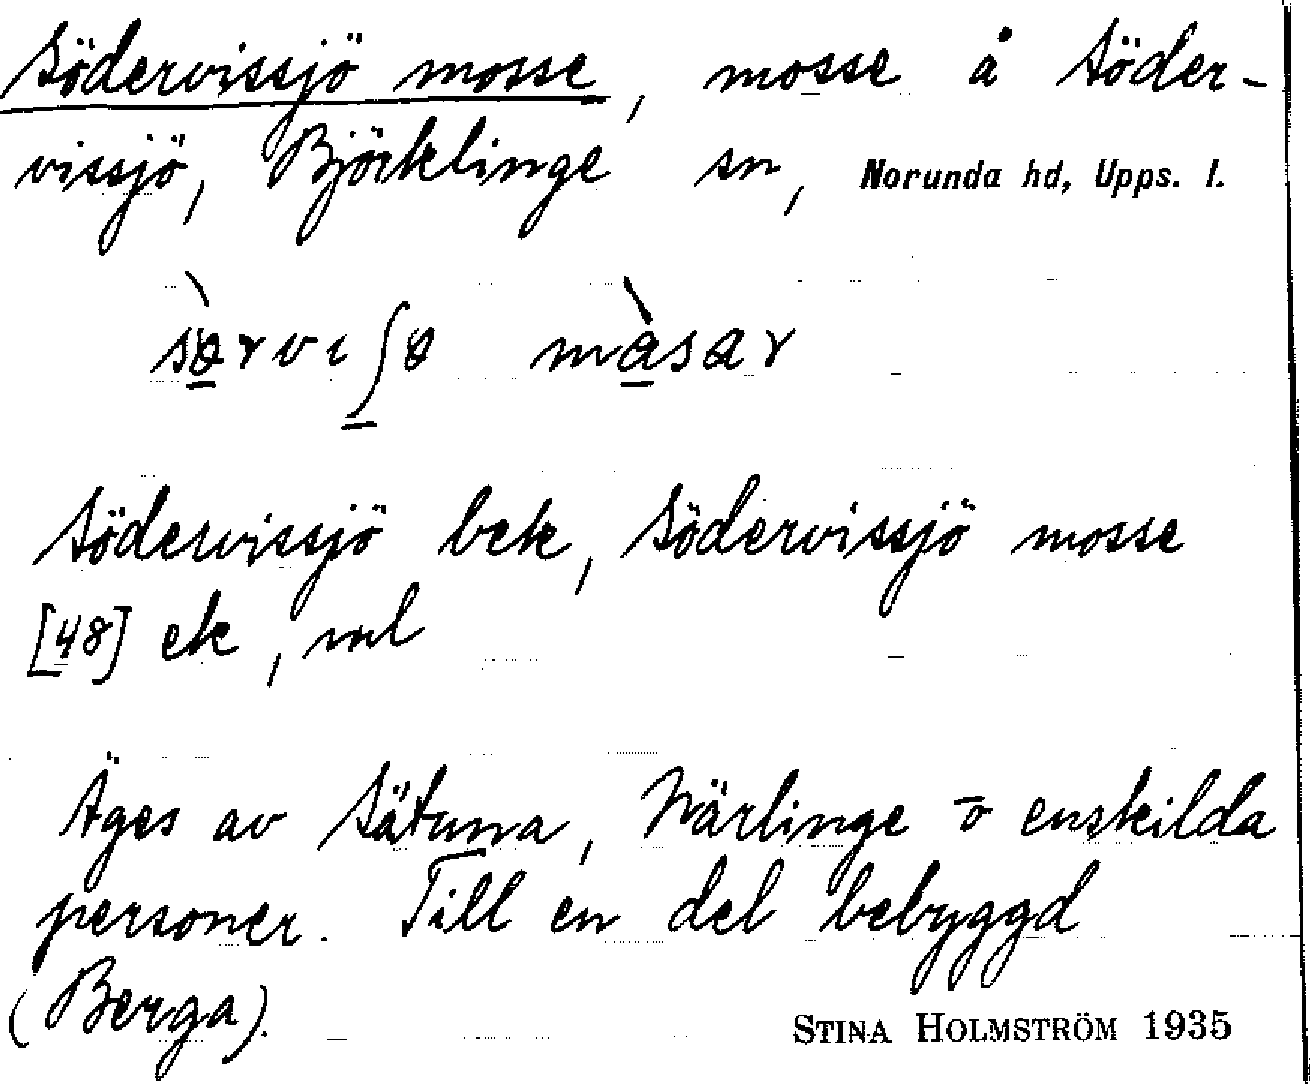 Södervissjö mosse, mosse å Söder-
vissjö, Björklinge sn, Norunda hd, Upps. l.
sə̀rvɩʃə màsar
Södervissjö bek, Södervissjö mosse
[48] ek,
Äges av Sätuna, Närlinge o enskilda
personer. Till en del bebyggd
(Berga).
STINA HOLMSTRÖM 1935